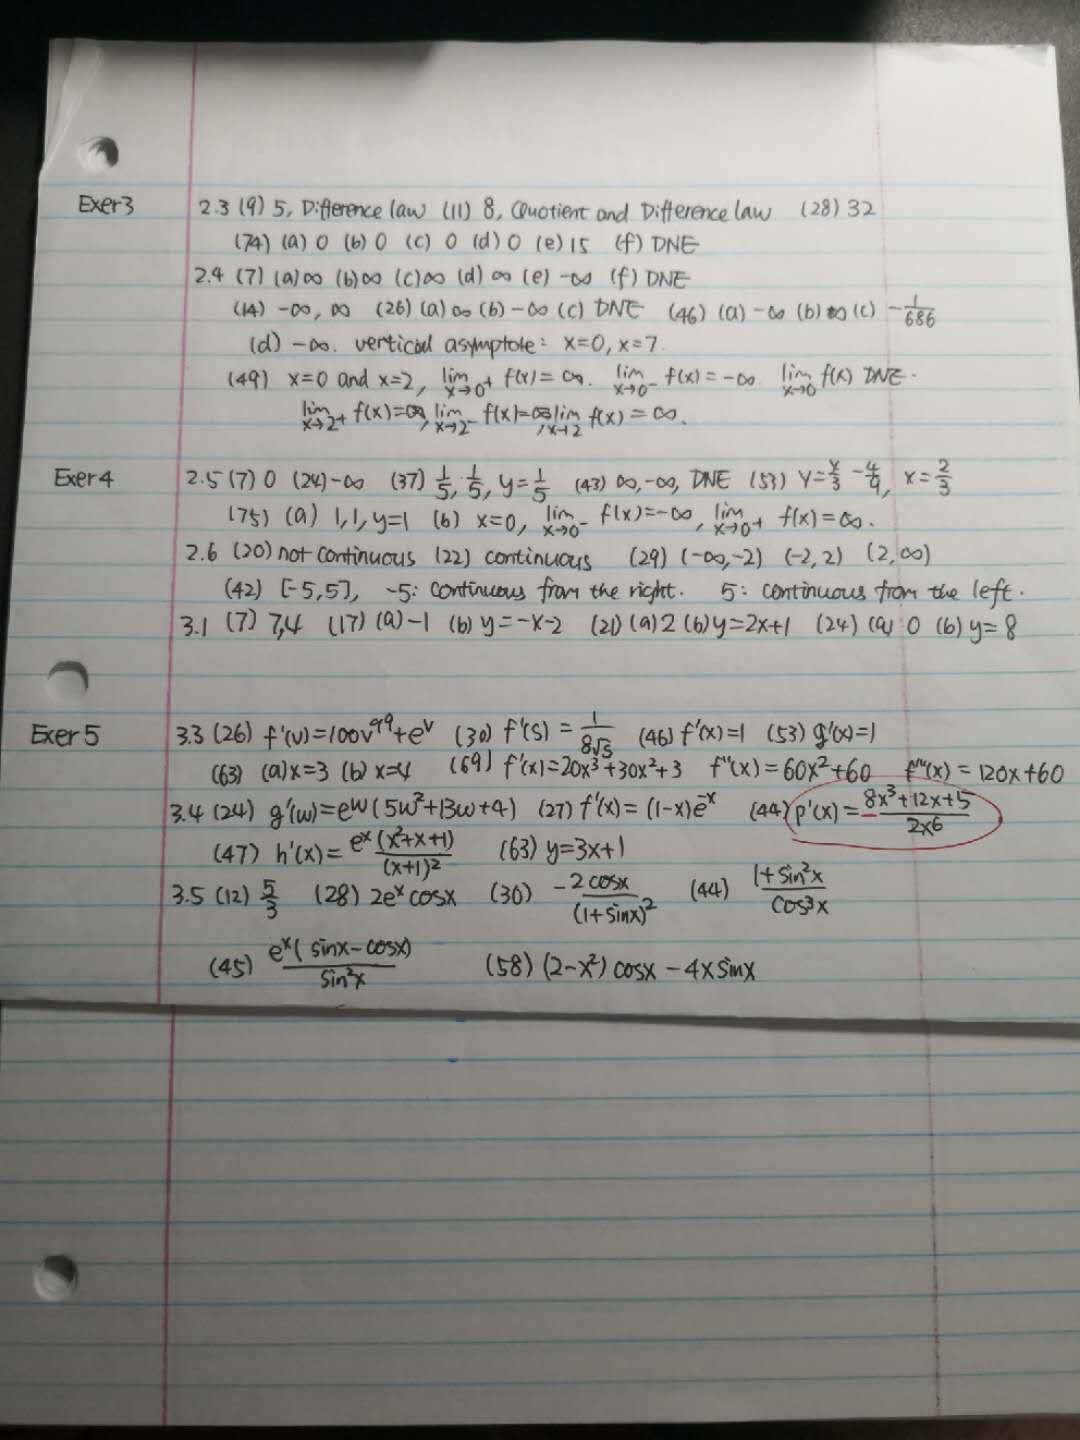 Exer3 2.3 (9) 5, Difference law (11) 8, Quotient and Difference law (28) 32
(74) (a) 0 (b) 0 (c) 0 (d) 0 (e) 15 (f) DNE
2.4 (7) (a) ∞ (b) ∞ (c) ∞ (d) ∞ (e) -∞ (f) DNE
(14) -∞, ∞ (26) (a) ∞ (b) -∞ (c) DNE (46) (a) -∞ (b) ∞ (c) -1/686
(d) -∞. vertical asymptote: x=0, x=7.
(49) x=0 and x=2, lim x→0⁺ f(x)=∞. lim x→0⁻ f(x)=-∞ lim x→0 f(x) DNE.
lim x→2⁺ f(x)=∞, lim x→2⁻ f(x)=∞, lim x→2 f(x)=∞.
Exer4 2.5 (7) 0 (24) -∞ (37) 1/5, 1/5, y=1/5 (43) ∞, -∞, DNE (53) y=x/3 - 4/9, x=2/3
(75) (a) 1, 1, y=1 (b) x=0, lim x→0⁻ f(x)=-∞, lim x→0⁺ f(x)=∞.
2.6 (20) not continuous (22) continuous (29) (-∞,-2) (-2,2) (2,∞)
(42) [-5,5], -5: continuous from the right. 5: continuous from the left.
3.1 (7) 7,4 (17) (a) -1 (b) y=-x-2 (21) (a) 2 (b) y=2x+1 (24) (a) 0 (b) y=8
Exer5 3.3 (26) f'(v)=100v⁹⁹+eᵛ (30) f'(s)=1/8√s (46) f'(x)=1 (53) g'(x)=1
(63) (a) x=3 (b) x=4 (69) f'(x)=20x³+30x²+3 f''(x)=60x²+60 f'''(x)=120x+60
3.4 (24) g'(w)=eʷ(5w²+13w+4) (27) f'(x)=(1-x)e⁻ˣ (44) p'(x)=-8x³+12x+5/2x6
(47) h'(x)=eˣ(x²+x+1)/(x+1)² (63) y=3x+1
3.5 (12) 5/3 (28) 2eˣcosx (30) -2cosx/(1+sinx)² (44) 1+sin²x/cos³x
(45) eˣ(sinx-cosx)/sin²x (58) (2-x²)cosx-4xsinx